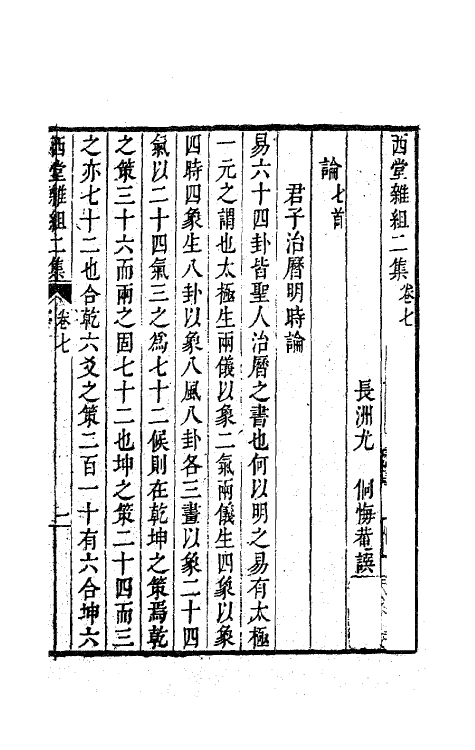 西堂雜組二集卷七
長洲尤侗悔菴譔
論七首
君子治曆明時論
易六十四卦皆聖人治曆之書也何以明之易有太極
一元之謂也太極生兩儀以象二氣兩儀生四象以象
四時四象生八卦以象八風八卦各三畫以象二十四
氣以二十四氣三之為七十二候則在乾坤之策焉乾
之策三十六而兩之固七十二也坤之策二十四而三
之亦七十二也合乾六爻之策二百一十有六合坤六
西堂雜組二集 卷七 一